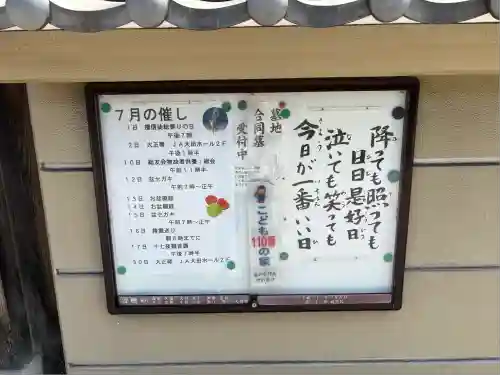 7月の催し
午後7時
2日 大正琴 JA大田ホール2F
午後1時半
午前11時半
12日 盆セガキ
午前7時〜正午
13日 お盆棚経
14日 お盆棚経
15日 盆セガキ
午前7時〜正午
16日
朝6時までに
17日 十七夜観音講
午後7時半
30日 大正琴 JA大田ホール2F
午後1時半
墓地
合同墓
受付中
こども
110番
の家
降ても照っても
日日是好日
泣いても笑っても
今日が一番いい日